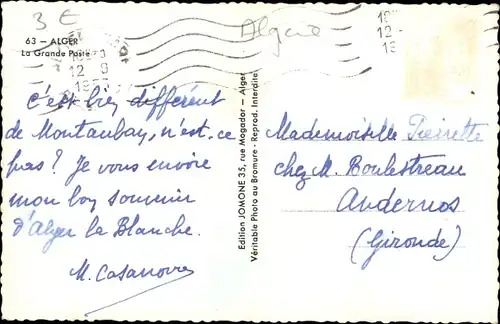 3 €
Algérie
63 — ALGER
La Grande Poste
12 - 9
12 -
c'est bien différent
de Montauban, n'est-ce
pas ? Je vous envoie
mon bon souvenir
d'Alger la Blanche.
M. Casanova
Edition JOMONE 35, rue Mogador - Alger
Véritable Photo au Bromure - Reprod. Interdite
Mademoiselle Pierrette
chez M. Boulestreau
Andernos
(Gironde)